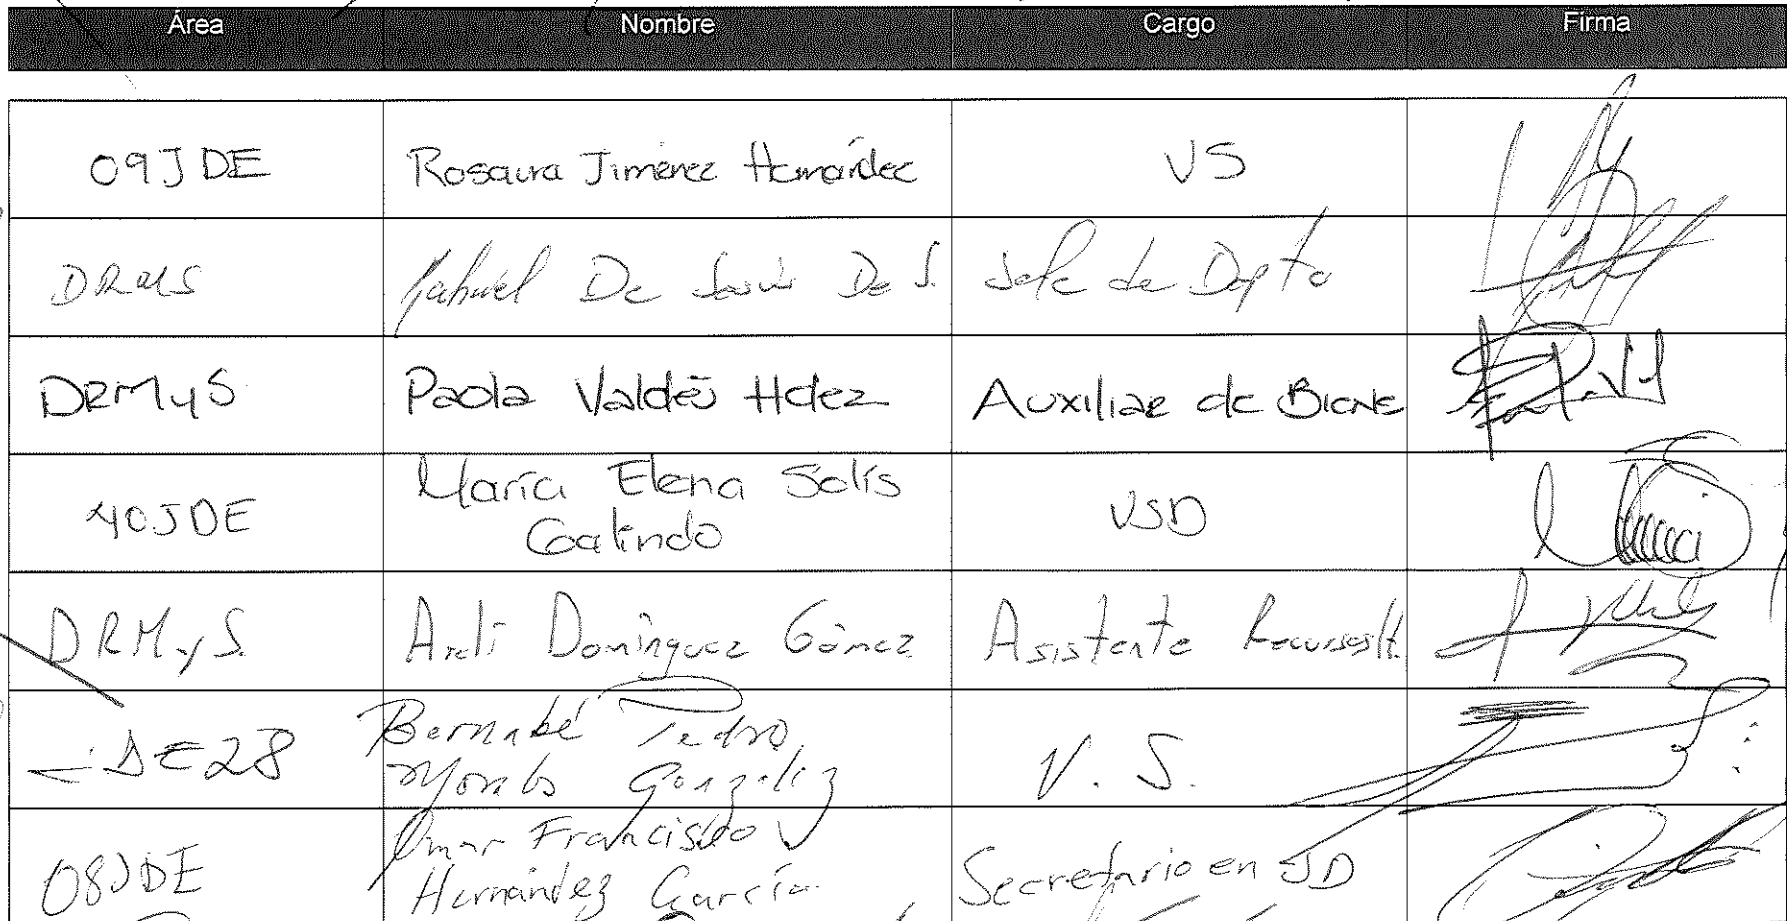 Área Nombre Cargo Firma
09JDE Rosaura Jiménez Hernández VS
DRMS Gabriel De Jesús De J. Jefe de Depto
DRMyS Paola Valdés Hdez Auxiliar de Biene
40JDE María Elena Solís
Galindo VSD
DRMyS. Areli Domínguez Gómez Asistente
JDE28 Bernabé Pedro
Morales González V. S.
08JDE Omar Francisco
Hernández García. Secretario en JD